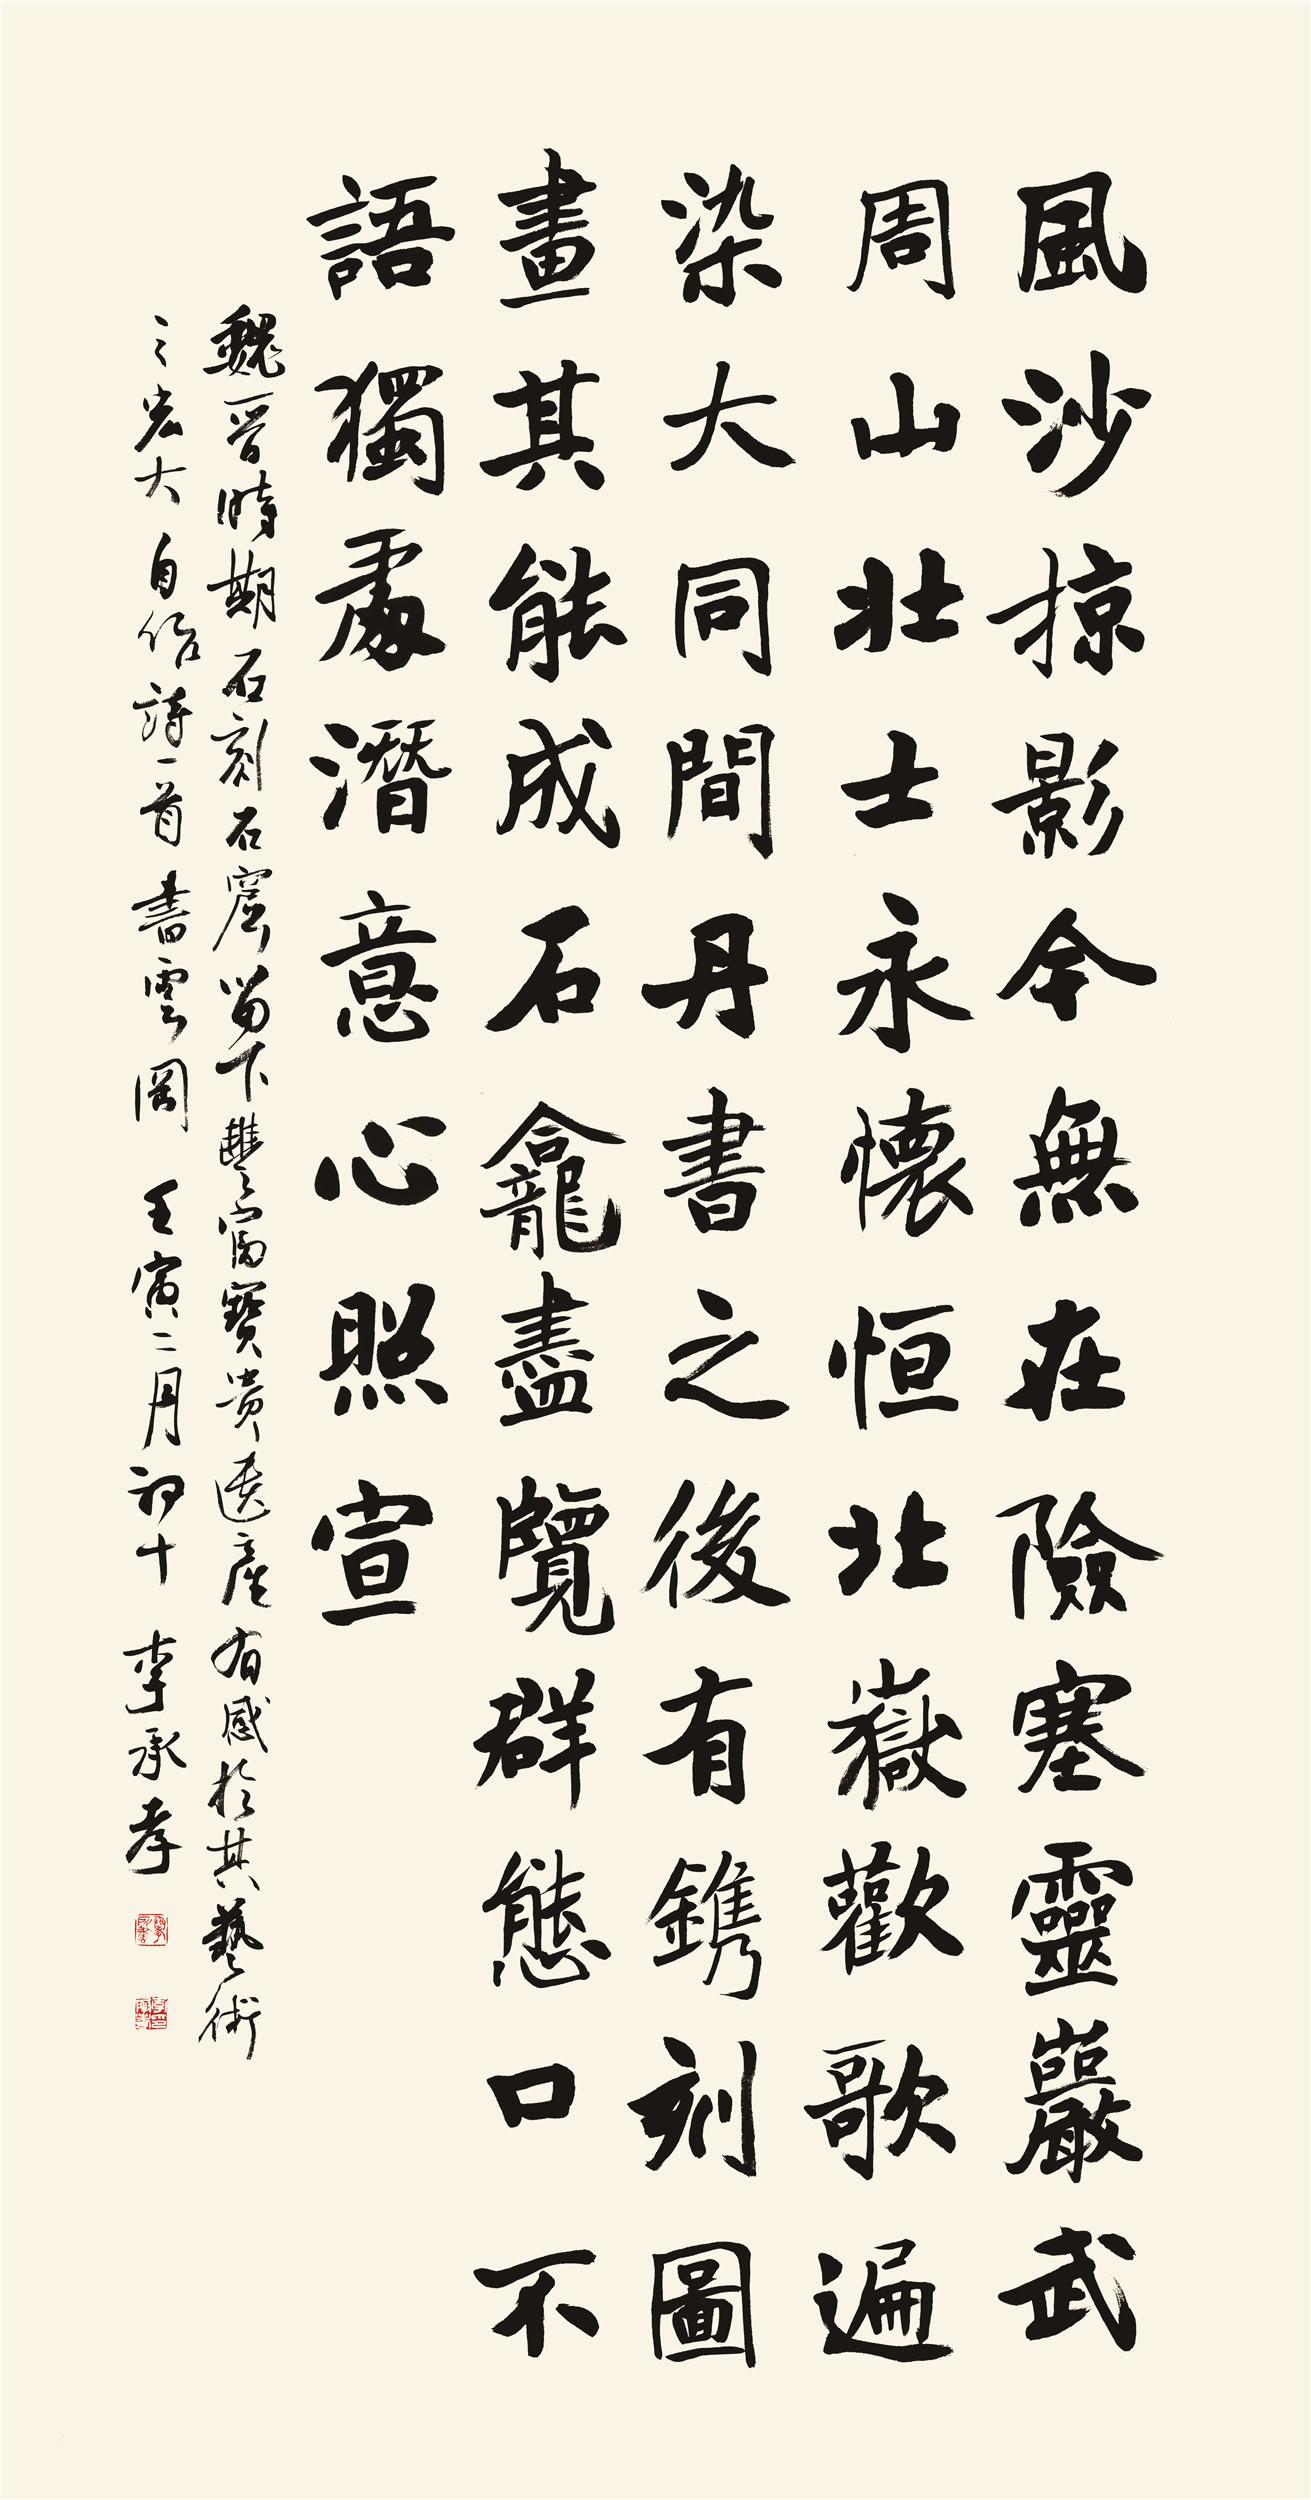 風沙掠影今無在險塞靈巖武
周山北士永懷恒北嶽歡歌遍
染大同間丹書之後有鐫刻圖
畫其能成石龕盡覽群態口不
語獨處潛意心照宣
魏晉時期石刻石窟留下豐富寶貴遺產有感於其藝術
之宏大自作詩一首書雲岡壬寅二月初十李承孝